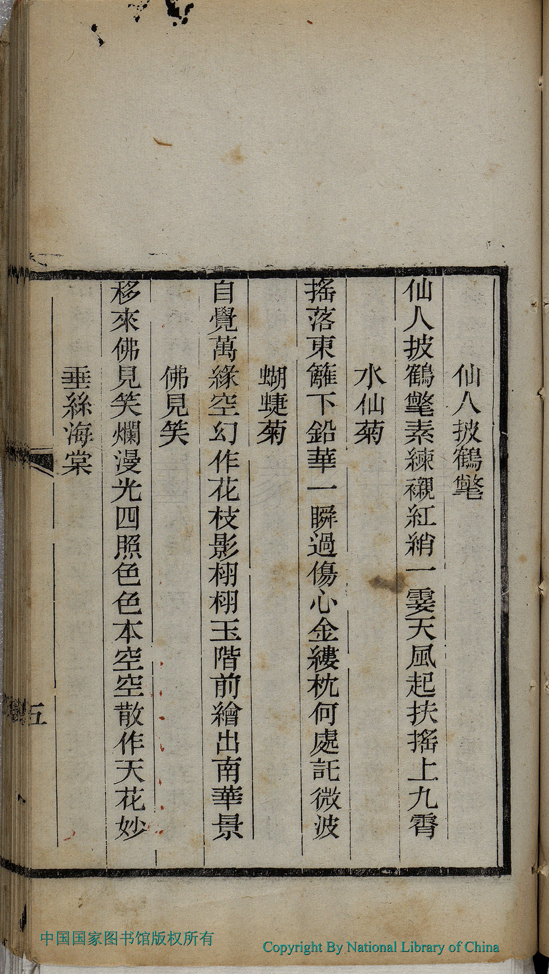 仙人披鶴氅
仙人披鶴氅素練襯紅綃一霎天風起扶搖上九霄
水仙菊
搖落東籬下鉛華一瞬過傷心金縷枕何處託微波
蝴蜨菊
自覺萬緣空幻作花枝影栩栩玉階前繪出南華景
佛見笑
移來佛見笑爛漫光四照色色本空空散作天花妙
垂絲海棠
五
中国国家图书馆版权所有
Copyright By National Library of China